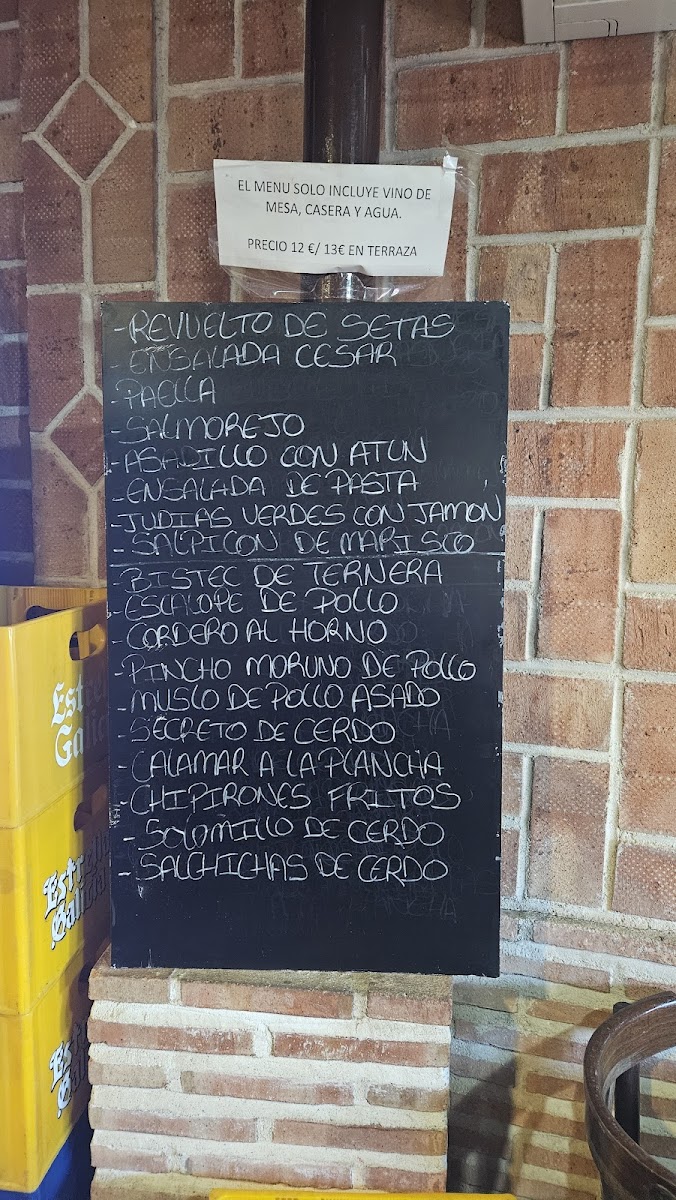 EL MENU SOLO INCLUYE VINO DE
MESA, CASERA Y AGUA.
PRECIO 12 €/ 13€ EN TERRAZA
- REVUELTO DE SETAS
- ENSALADA CESAR
- PAELLA
- SALMOREJO
- ASADILLO CON ATUN
- ENSALADA DE PASTA
- JUDIAS VERDES CON JAMON
- SALPICON DE MARISCO
- BISTEC DE TERNERA
- ESCALOPE DE POLLO
- CORDERO AL HORNO
- PINCHO MORUNO DE POLLO
- MUSLO DE POLLO ASADO
- SECRETO DE CERDO
- CALAMAR A LA PLANCHA
- CHIPIRONES FRITOS
- SOLOMILLO DE CERDO
- SALCHICHAS DE CERDO
Estrella
Galicia
Estrella
Galicia